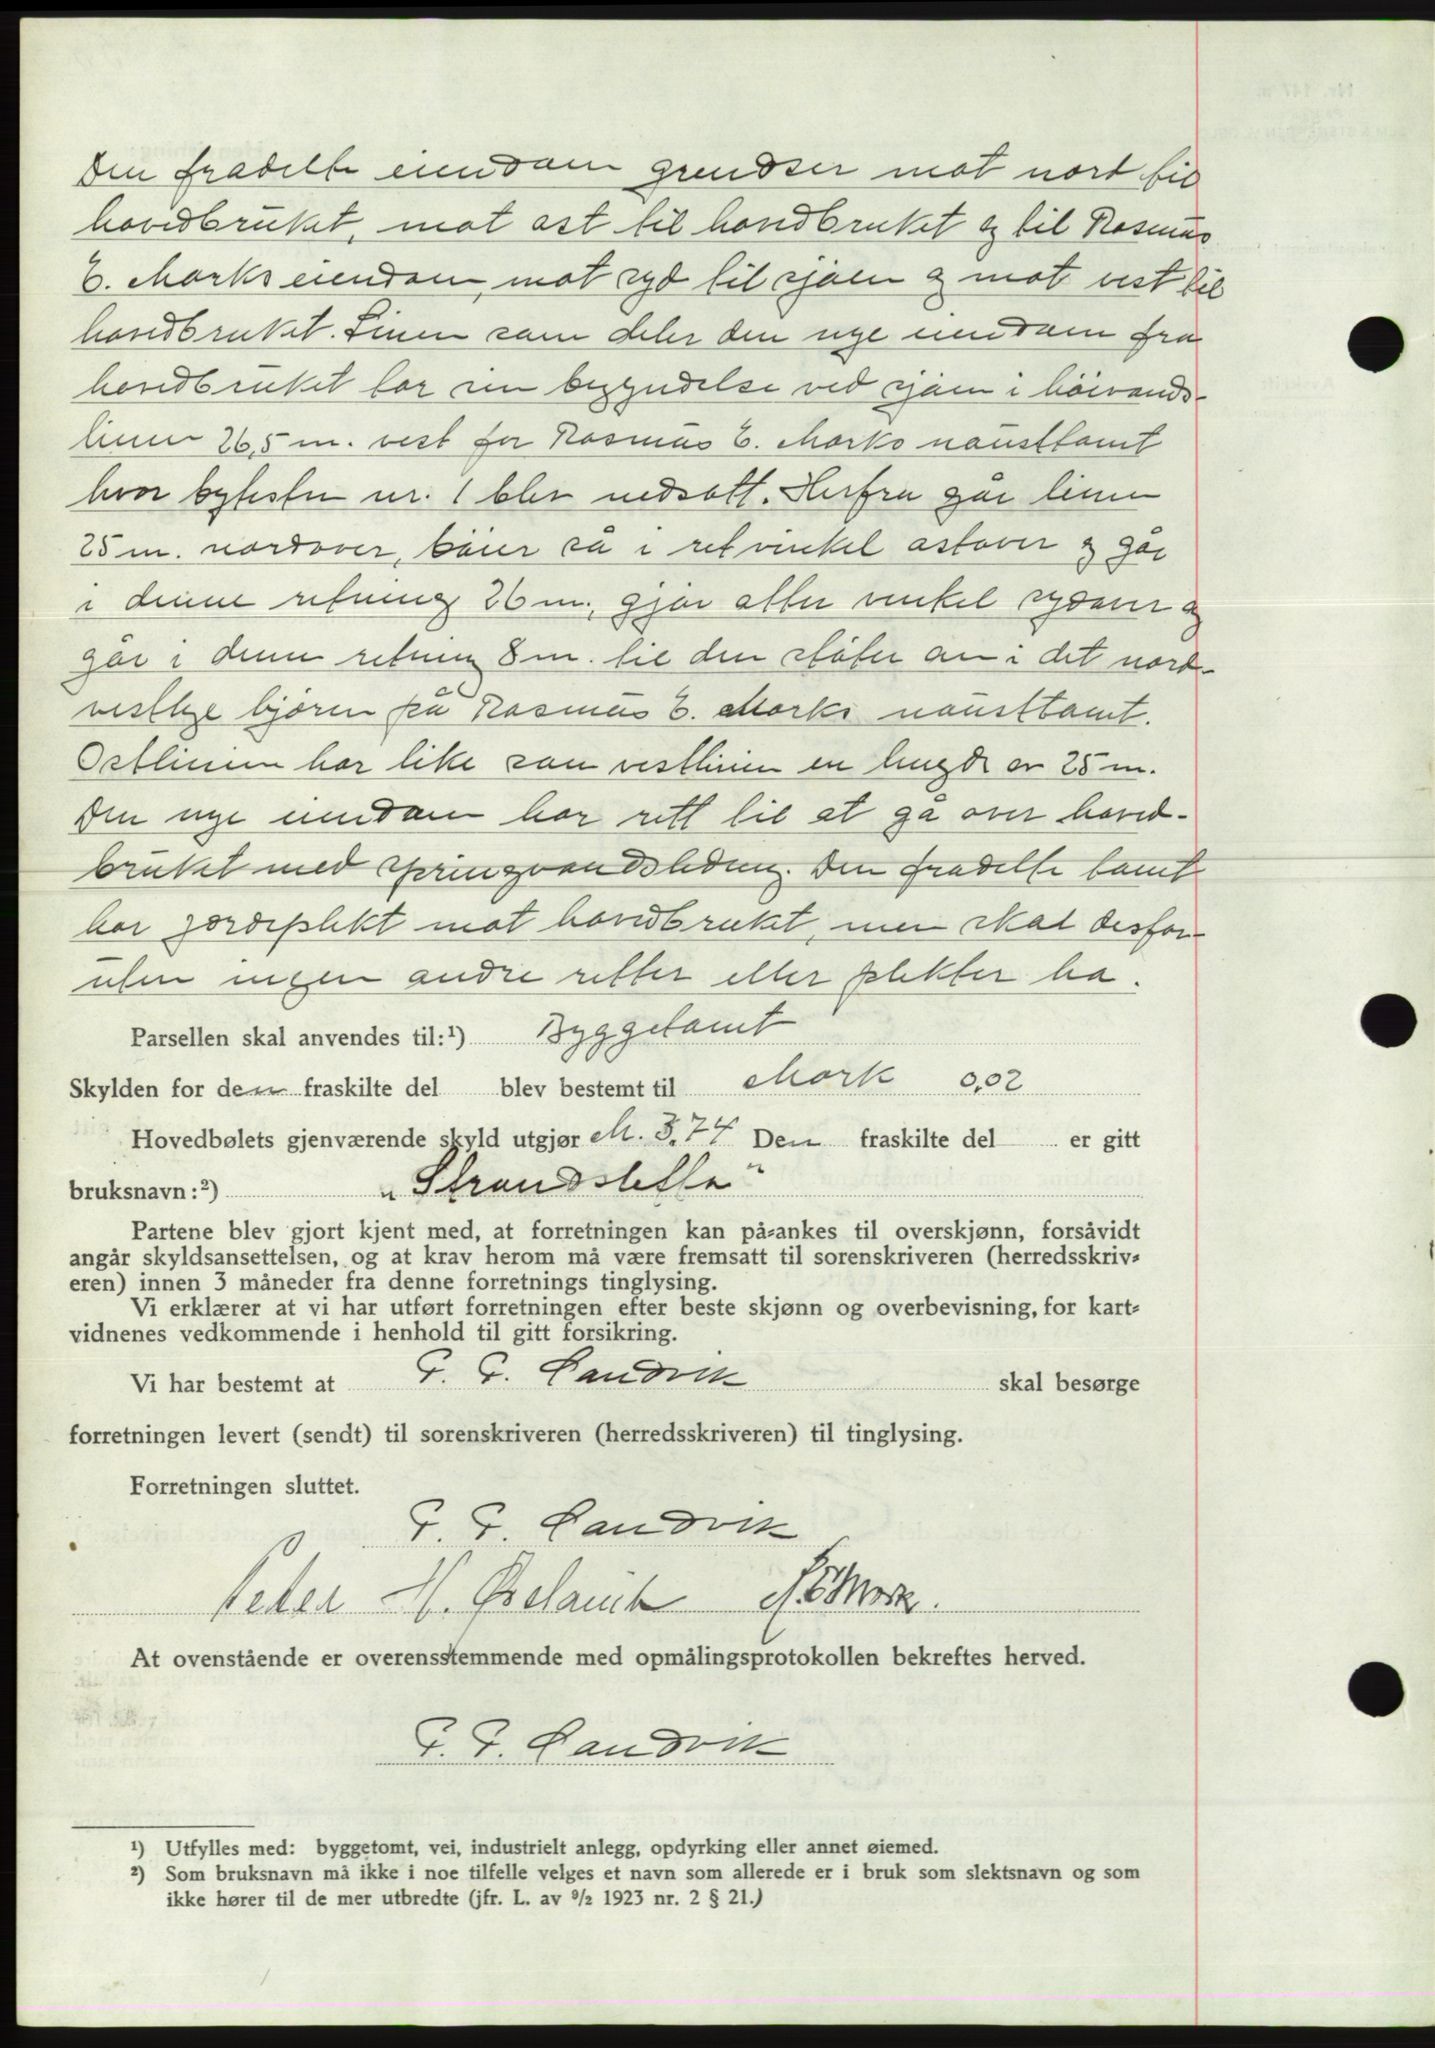 Den fradelte eiendom grendser mot nord til
hovedbruket, mot øst til hovedbruket og til Rasmus
E. Morks eiendom, mot syd til sjøen og mot vest til
hovedbruket. Linen som deler den nye eiendom fra
hovedbruket tar sin begyndelse ved sjøen i höivands-
linen 26,5 m. vest for Rasmus E. Morks nausttomt
hvor bytesten nr. 1 blev nedsatt. Herfra går linen
25 m. nordover, böier så i ret vinkel østover og går
i denne retning 26 m., gjør atter vinkel sydover og
går i denne retning 8 m. til den støter an i det nord-
vestlige hjørne på Rasmus E. Morks nausttomt.
Østlinien har like som vestlinien en lengde av 25 m.
Den nye eiendom har rett til at gå over hoved-
bruket med springvandsledning. Den fradelte tomt
har gjerdeplikt mot hovedbruket, men skal desfor-
uten ingen andre retter eller plikter ha.
Parsellen skal anvendes til:¹) Byggetomt
Skylden for den fraskilte del blev bestemt til Mark 0,02
Hovedbølets gjenværende skyld utgjør M. 3,74 Den fraskilte del er gitt
bruksnavn:²) „Strandsletta"
Partene blev gjort kjent med, at forretningen kan på-ankes til overskjønn, forsåvidt
angår skyldsansettelsen, og at krav herom må være fremsatt til sorenskriveren (herredsskriv-
eren) innen 3 måneder fra denne forretnings tinglysing.
Vi erklærer at vi har utført forretningen efter beste skjønn og overbevisning, for kart-
vidnenes vedkommende i henhold til gitt forsikring.
Vi har bestemt at P. P. Sandvik skal besørge
forretningen levert (sendt) til sorenskriveren (herredsskriveren) til tinglysing.
Forretningen sluttet.
P. P. Sandvik
Peder H. R. E. Mork.
At ovenstående er overensstemmende med opmålingsprotokollen bekreftes herved.
P. P. Sandvik
¹) Utfylles med: byggetomt, vei, industrielt anlegg, opdyrking eller annet øiemed.
²) Som bruksnavn må ikke i noe tilfelle velges et navn som allerede er i bruk som slektsnavn og som
ikke hører til de mer utbredte (jfr. L. av ⁹/₂ 1923 nr. 2 § 21.)